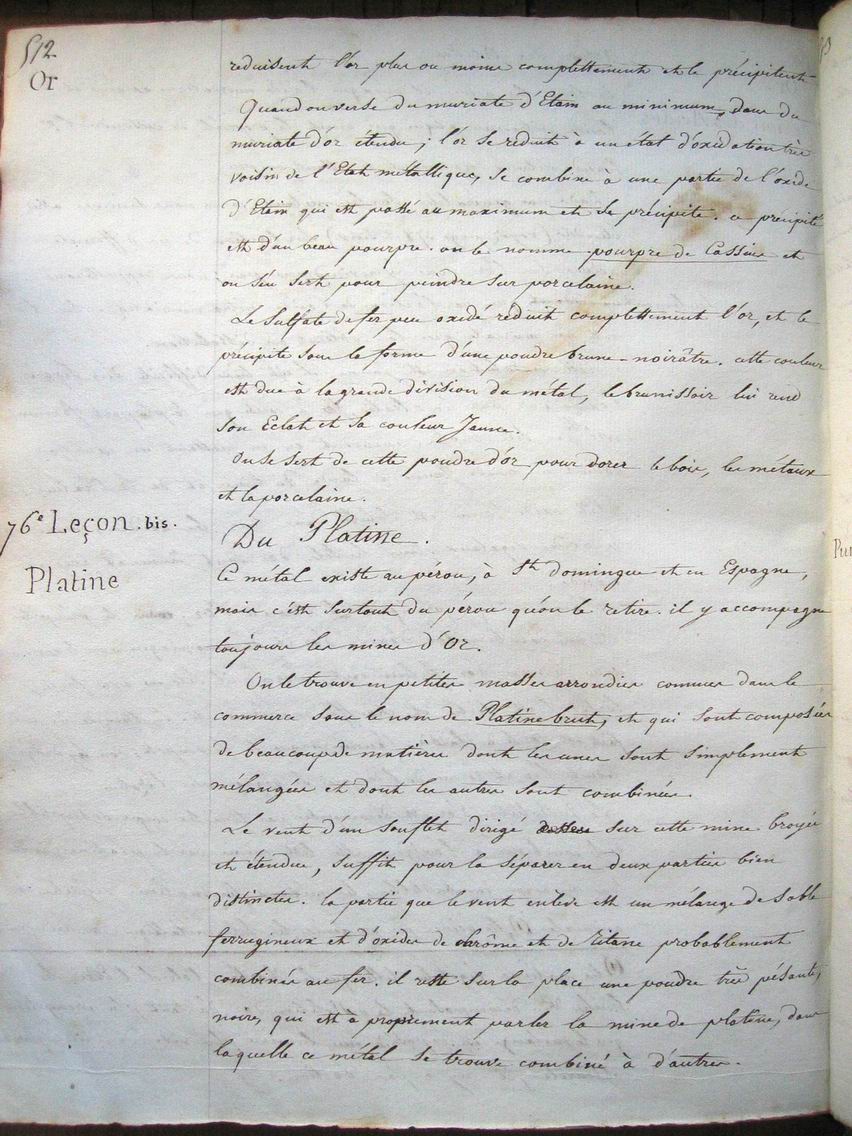 512
Or
reduisent l'or plus ou moins complettement et le précipitent
Quand on verse du muriate d'Etain au minimum, dans du
muriate d'or étendu, l'or se reduit à un état d'oxidation très
voisin de l'Etat métallique, se combine à une partie de l'oxide
d'Etain qui est passé au maximum et se précipite. ce précipité
est d'un beau pourpre. on le nomme pourpre de Cassius et
on s'en sert pour peindre sur porcelaine.
Le Sulfate de fer peu oxidé reduit complettement l'or, et le
précipite sous la forme d'une poudre brune-noirâtre. cette couleur
est due à la grande division du métal, le brunissoir lui rend
son Eclat et sa couleur Jaune.
On se sert de cette poudre d'or pour dorer le bois, les métaux
et la porcelaine.
76e Leçon.bis.
Du Platine.
Platine
Ce métal existe au pérou, à St domingue et en Espagne,
mais c'est surtout du pérou qu'on le retire. il y accompagne
toujours les mines d'Or.
On le trouve en petites masses arrondies connues dans le
commerce sous le nom de Platine brut, et qui sont composées
de beaucoup de matières dont les unes sont simplement
mélangées et dont les autres sont combinées.
Le vent d'un soufflet dirigé sur cette mine broyée
et étendue, suffit pour la séparer en deux parties bien
distinctes. la partie que le vent enlève est un mélange de sable
ferrugineux et d'oxides de chrôme et de titane probablement
combinés au fer. il reste sur la place une poudre très pésante,
noire, qui est à proprement parler la mine de platine, dans
laquelle ce métal se trouve combiné à d'autres.